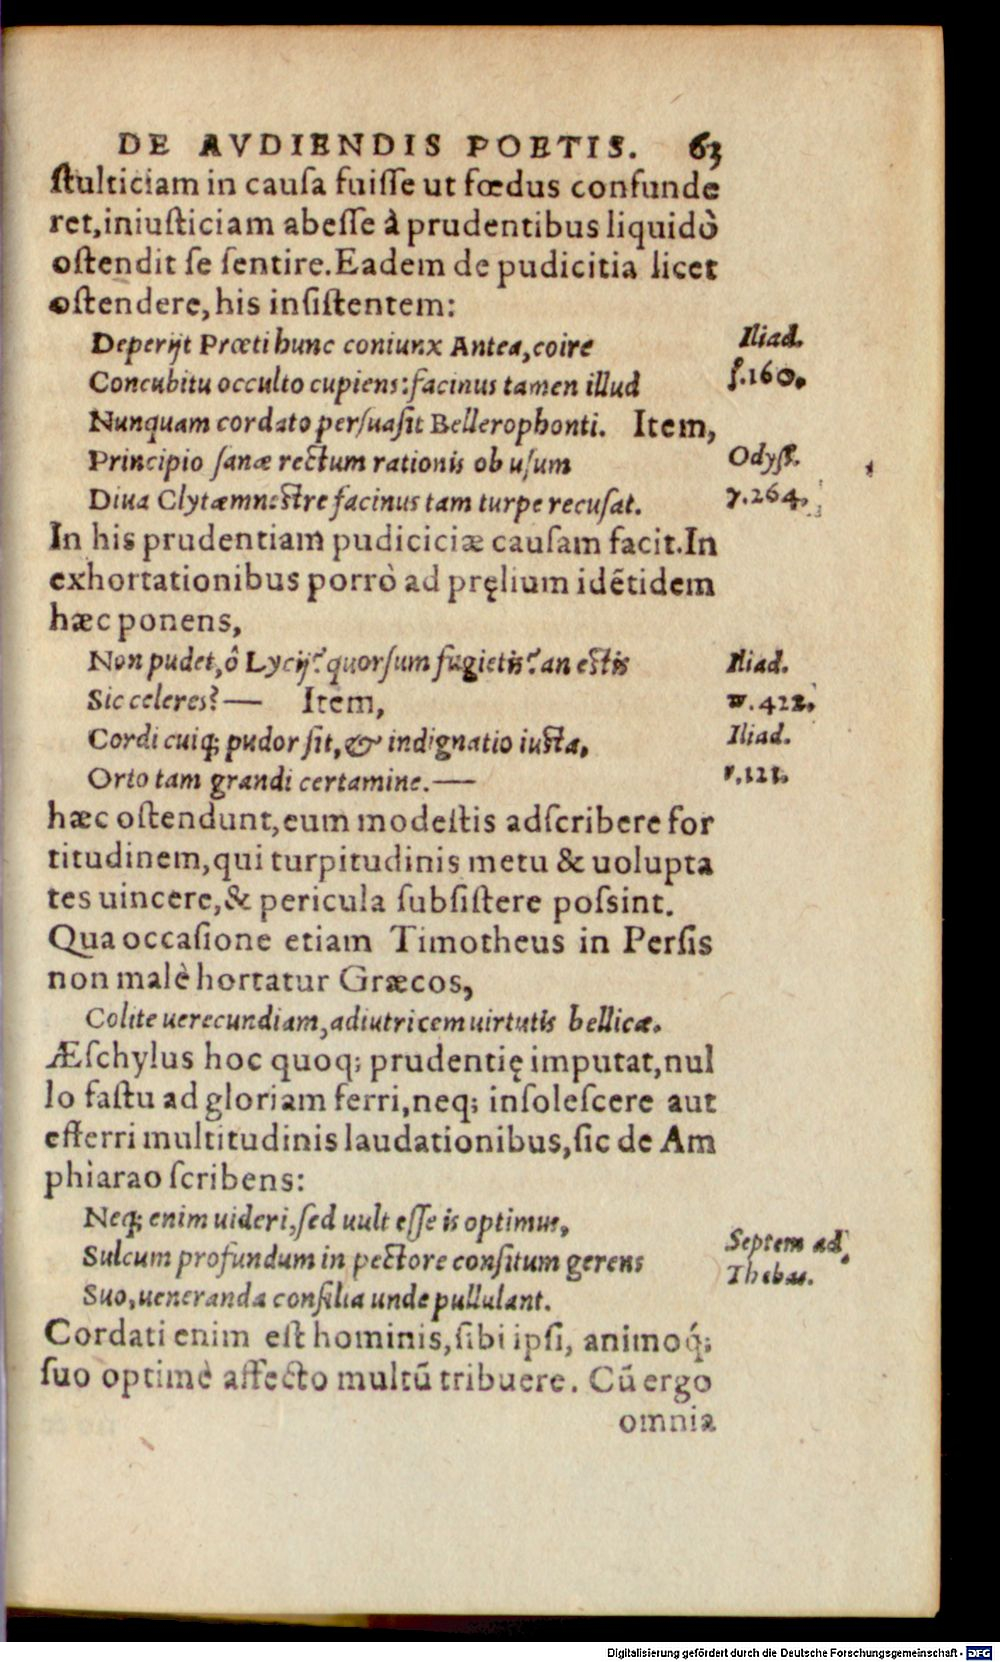 DE AVDIENDIS POETIS. 63
ſtulticiam in cauſa fuiſſe ut fœdus confunde
ret,iniuſticiam abeſſe à prudentibus liquidò
oſtendit ſe ſentire.Eadem de pudicitia licet
oſtendere, his inſiſtentem:
Deperijt Prœti hunc coniunx Antea, coire
Iliad.
Concubitu occulto cupiens: facinus tamen illud
ſ.160.
Nunquam cordato perſuaſit Bellerophonti. Item,
Principio ſanæ rectum rationis ob uſum
Odyſſ.
Diua Clytæmneſtre facinus tam turpe recuſat.
γ.264.
In his prudentiam pudiciciæ cauſam facit.In
exhortationibus porrò ad pręlium idẽtidem
hæc ponens,
Non pudet, ô Lycij? quorſum fugietis? an eſtis
Iliad.
Sic celeres? — Item,
π.422.
Cordi cuiq; pudor ſit, & indignatio iuſta,
Iliad.
Orto tam grandi certamine. —
ν.121.
hæc oſtendunt, eum modeſtis adſcribere for
titudinem, qui turpitudinis metu & uolupta
tes uincere, & pericula ſubſiſtere poſsint.
Qua occaſione etiam Timotheus in Perſis
non malè hortatur Græcos,
Colite uerecundiam, adiutricem uirtutis bellicæ.
Æſchylus hoc quoq; prudentię imputat, nul
lo faſtu ad gloriam ferri, neq; inſoleſcere aut
efferri multitudinis laudationibus, ſic de Am
phiarao ſcribens:
Neq; enim uideri, ſed uult eſſe is optimus,
Sulcum profundum in pectore conſitum gerens
Septem ad
Thebas.
Suo, ueneranda conſilia unde pullulant.
Cordati enim eſt hominis, ſibi ipſi, animoq́;
ſuo optimè affecto multũ tribuere. Cũ ergo
omnia
Digitalisierung gefördert durch die Deutsche Forschungsgemeinschaft - DFG